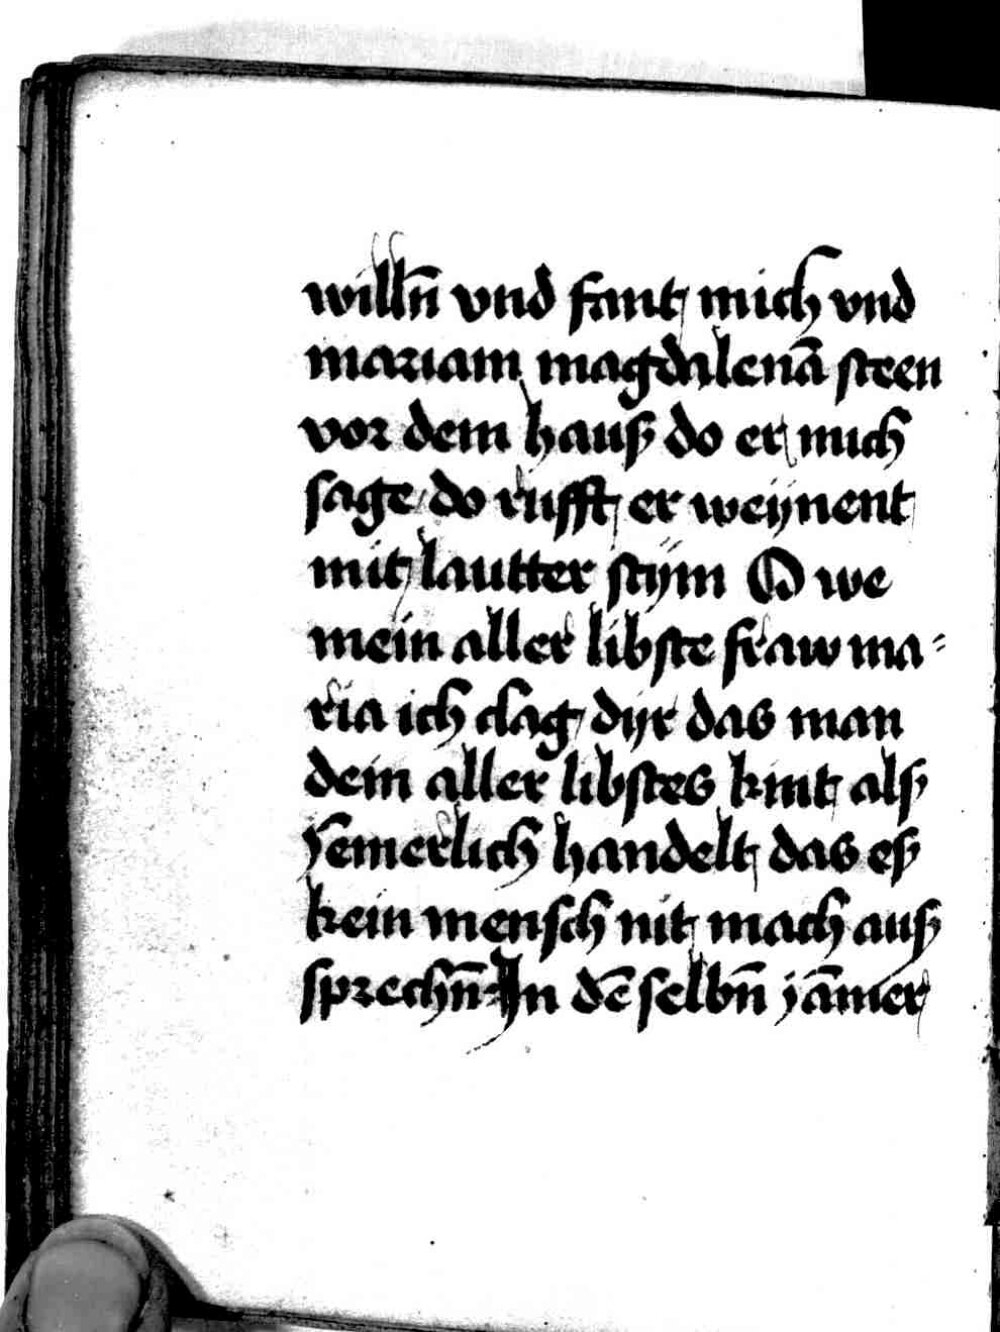 willn̄ vnd fant mich vnd
mariam magdalenā steen
vor dem hauß do er mich
sage do rufft er weÿnent
mit lautter stÿm O we
mein aller libste fraw ma⸗
ria ich clag dÿr das man
dein aller libstes kint alß
yemerlich handelt das eß
kein mensch nit mach auß
sprechn̄ In dē selbn̄ jāmer